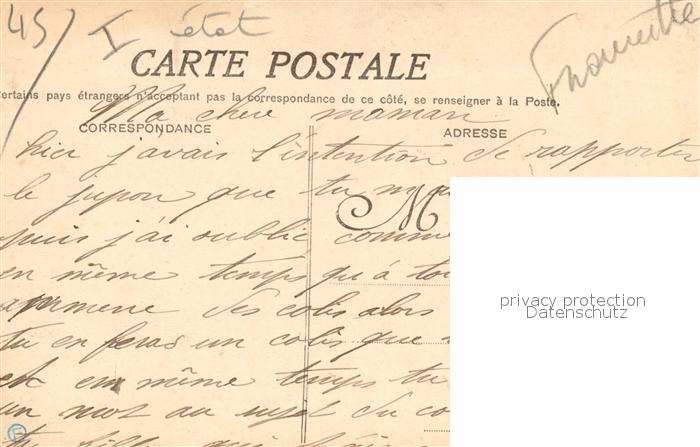 45
I état
CARTE POSTALE
Certains pays étrangers n'acceptant pas la correspondance de ce côté, se renseigner à la Poste.
Ma chere maman
CORRESPONDANCE
ADRESSE
hier j'avais l'intention de rapporter
le jupon que tu m'a
M
puis j'ai oublié comme
en même temps qu'à
des colis alors
privacy protection
Datenschutz
tu en feras un colis que
et en même temps tu
un mot au sujet du co